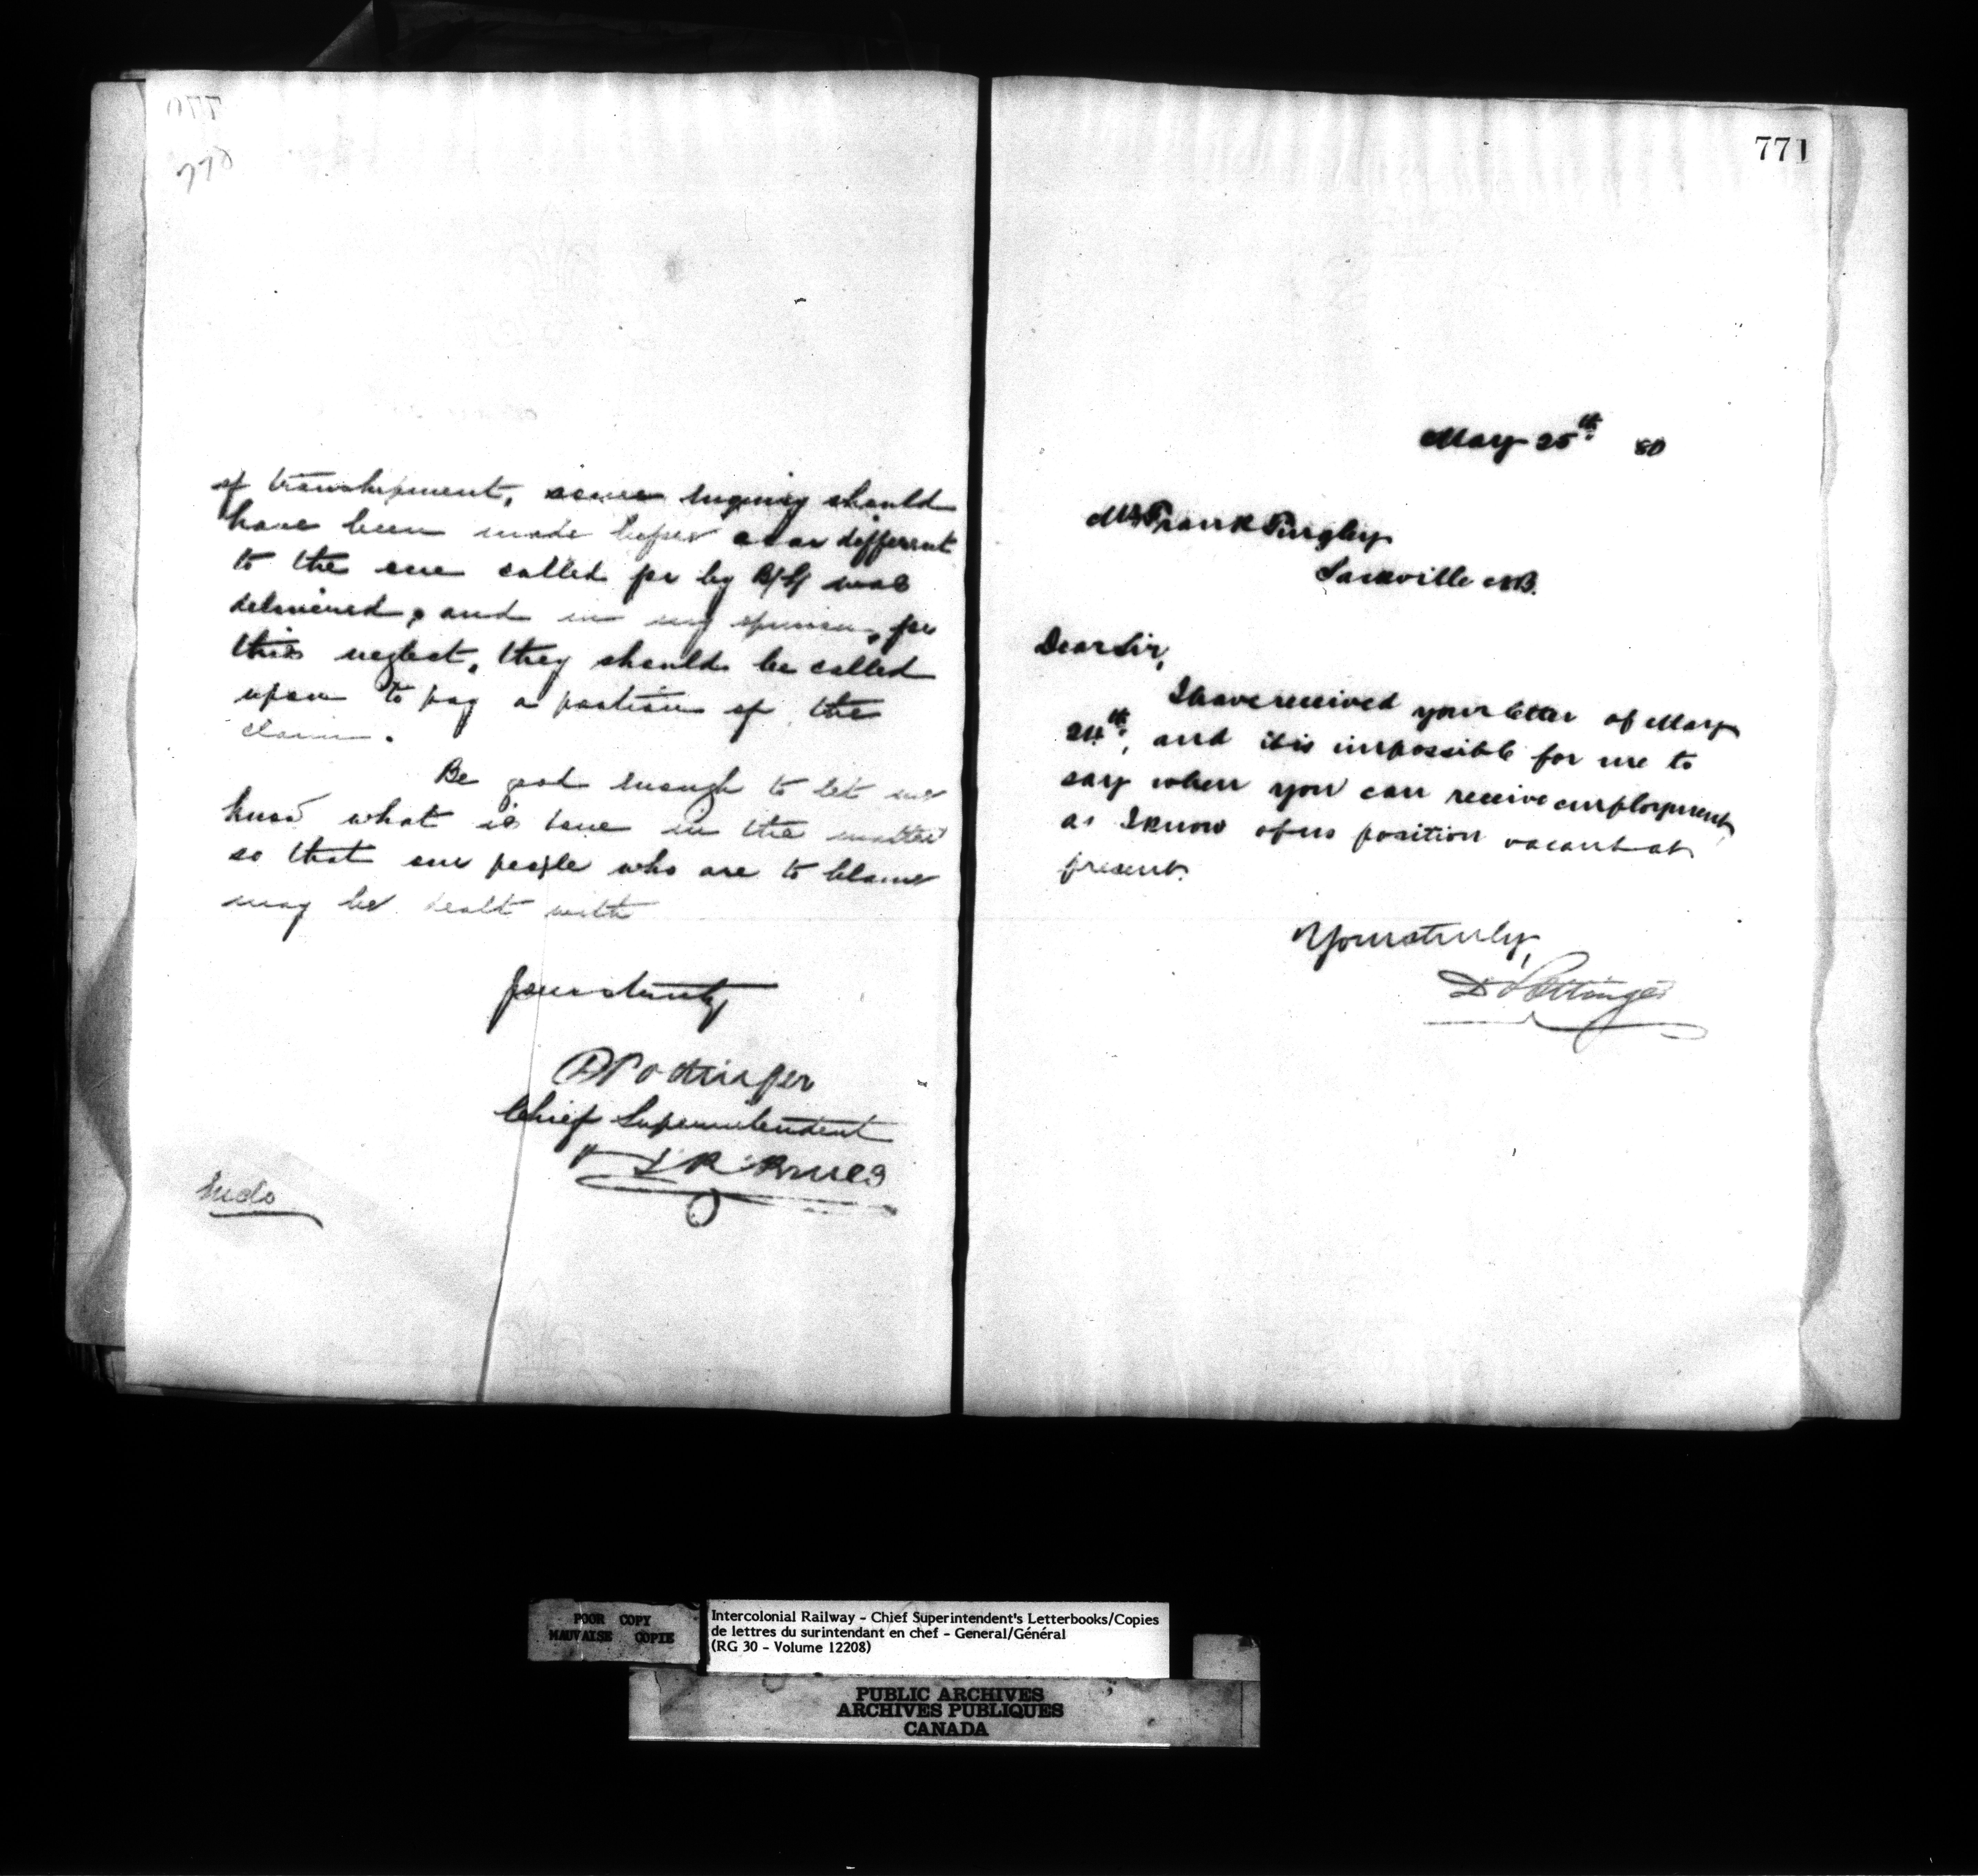 770
of transhipment, some enquiry should
have been made before a car different
to the one called for by B/L was
delivered, and in my opinion, for
this neglect, they should be called
upon to pay a portion of the
claim.
Be good enough to let me
know what is done in the matter
so that our people who are to blame
may be dealt with
Yours truly
D Pottinger
Chief Superintendent
I R
Enclo
771
May 25th 80
Mr Frank
Sackville NB.
Dear Sir,
I have received your letter of May
24th, and it is impossible for me to
say when you can receive employment,
as I know of no position vacant at
present.
Yours truly,
D Pottinger
POOR COPY
MAUVAISE COPIE
Intercolonial Railway - Chief Superintendent's Letterbooks/Copies
de lettres du surintendant en chef - General/Général
(RG 30 - Volume 12208)
PUBLIC ARCHIVES
ARCHIVES PUBLIQUES
CANADA